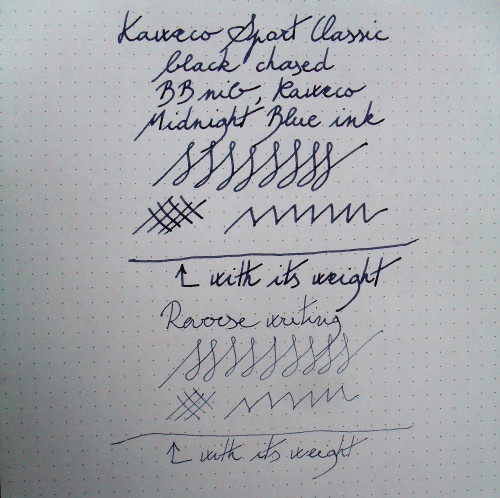 Kaweco Sport Classic
black chased
BB nib, Kaweco
Midnight Blue ink
with its weight
Reverse writing
with its weight